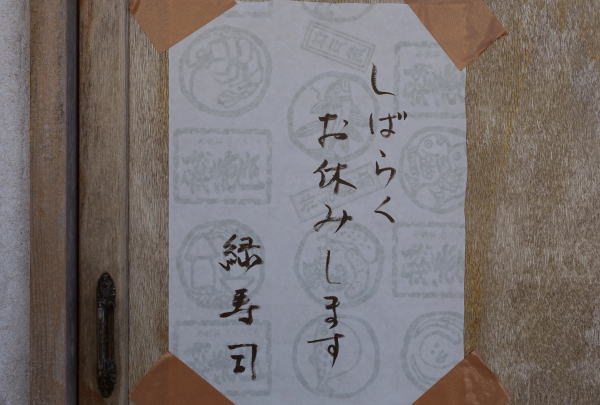 しばらく
お休みします
緑寿司